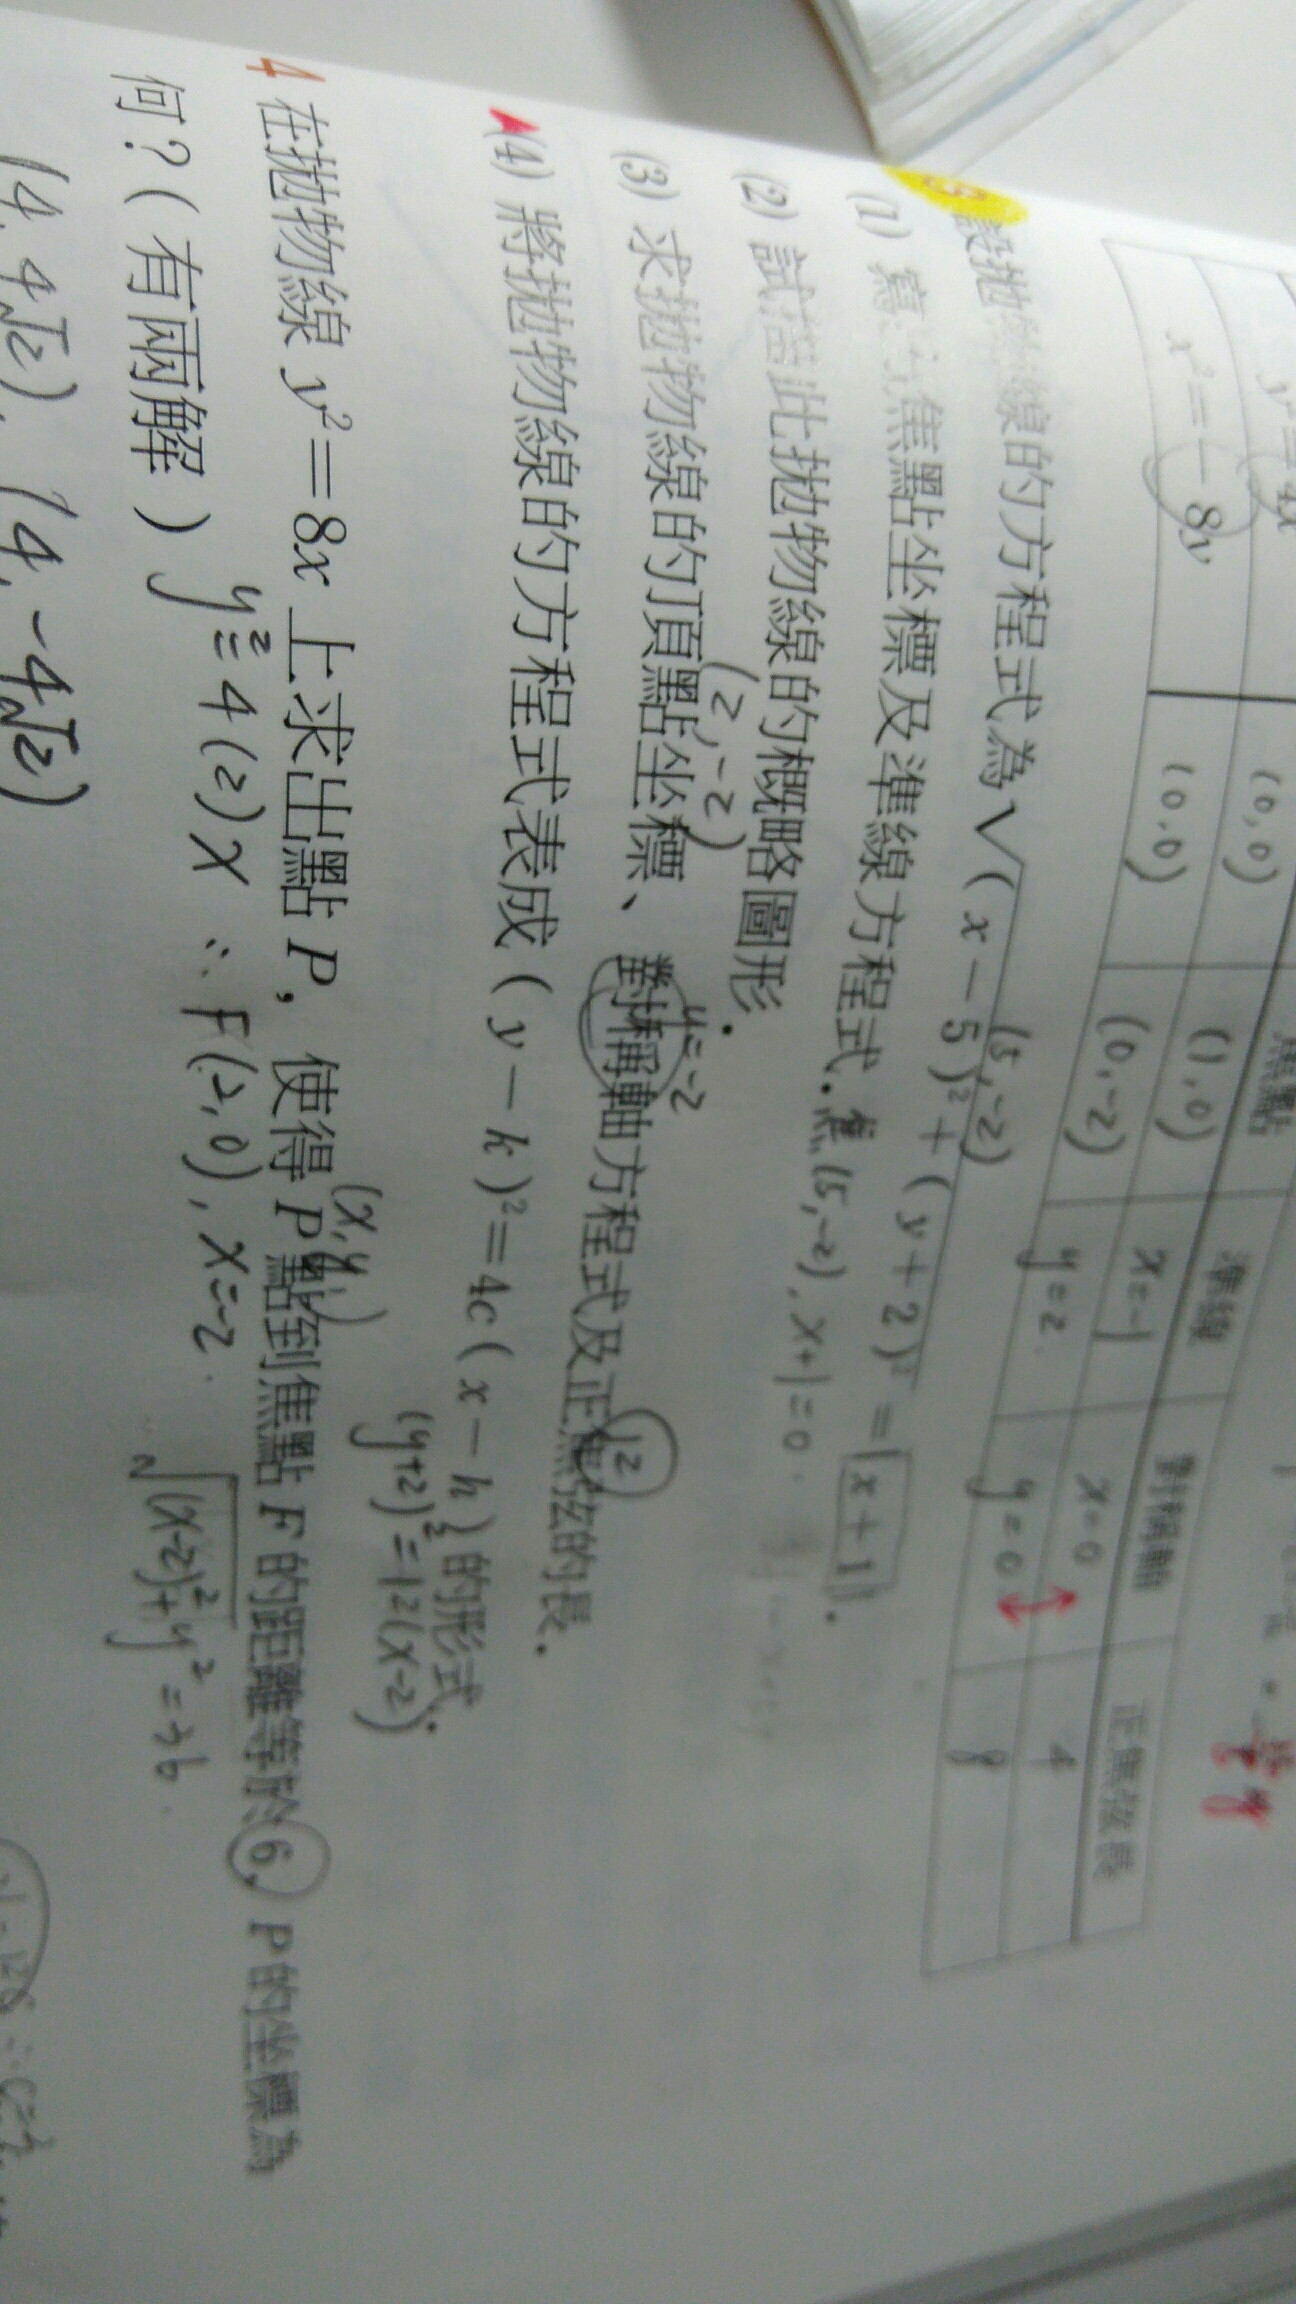 焦點 準線 對稱軸 正焦弦長
y²=4x (0,0) (1,0) x=-1 x=0 4
x²=-8y (0,0) (0,-2) y=2 y=0 8
3 設拋物線的方程式為√(x-5)²+(y+2)²=|x+1|.
(5,-2)
(1) 寫出焦點坐標及準線方程式. 焦(5,-2), x+1=0
(2) 試描此拋物線的概略圖形.
(2,-2) y=-2 12
(3) 求拋物線的頂點坐標、對稱軸方程式及正焦弦的長.
(4) 將拋物線的方程式表成(y-k)²=4c(x-h)的形式.
(y+2)²=12(x-2)
(x,y)
4 在拋物線 y²=8x 上求出點 P,使得 P 點到焦點 F 的距離等於6, P 的坐標為
何?(有兩解) y²=4(2)x ∴F(2,0), x=-2. √(x-2)²+y²=36.
(4,4√2), (4,-4√2)